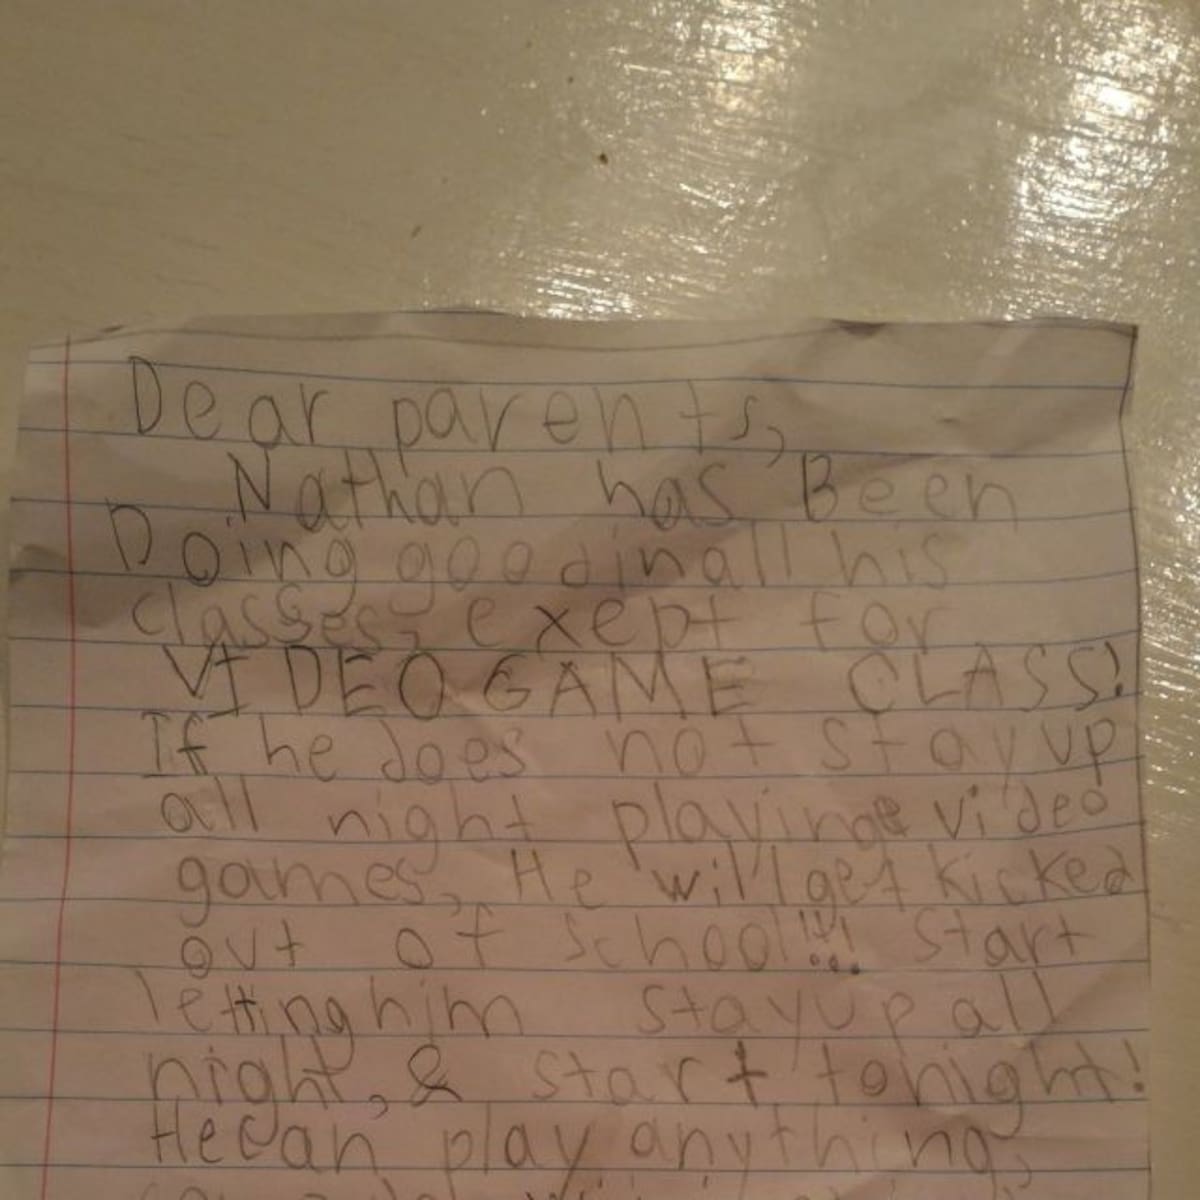 Dear parents,
Nathan has Been
Doing good in all his
classes, exept for
VIDEO GAME CLASS!
If he does not stay up
all night playing video
games, He will get kicked
out of school!!! start
letting him stay up all
night, & start tonight!
He can play anything,